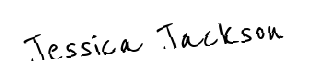 Jessica Jackson